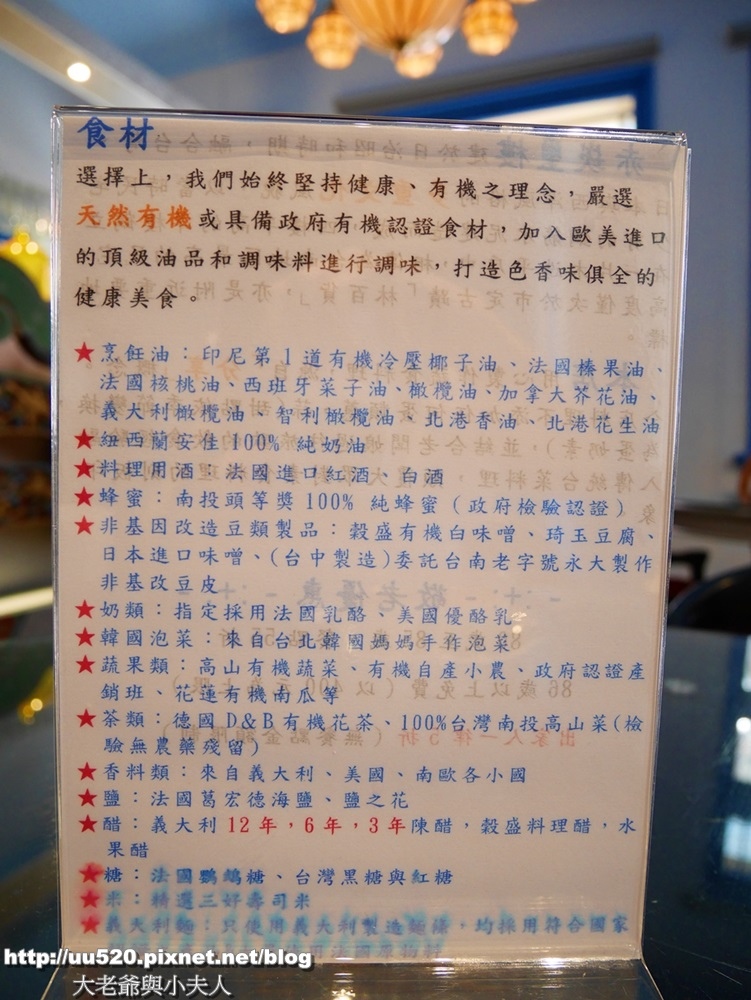 食材
選擇上，我們始終堅持健康、有機之理念，嚴選
天然有機或具備政府有機認證食材，加入歐美進口
的頂級油品和調味料進行調味，打造色香味俱全的
健康美食。
★烹飪油：印尼第1道有機冷壓椰子油、法國榛果油、
法國核桃油、西班牙菜子油、橄欖油、加拿大芥花油、
義大利橄欖油、智利橄欖油、北港香油、北港花生油
★紐西蘭安佳100% 純奶油
★料理用酒：法國進口紅酒、白酒
★蜂蜜：南投頭等獎100% 純蜂蜜（政府檢驗認證）
★非基因改造豆類製品：穀盛有機白味噌、琦玉豆腐、
日本進口味噌、(台中製造)委託台南老字號永大製作
非基改豆皮
★奶類：指定採用法國乳酪、美國優酪乳
★韓國泡菜：來自台北韓國媽媽手作泡菜
★蔬果類：高山有機蔬菜、有機自產小農、政府認證產
銷班、花蓮有機南瓜等
★茶類：德國D&B有機花茶、100%台灣南投高山菜(檢
驗無農藥殘留)
★香料類：來自義大利、美國、南歐各小國
★鹽：法國葛宏德海鹽、鹽之花
★醋：義大利12年，6年，3年陳醋，穀盛料理醋，水
果醋
★糖：法國鸚鵡糖、台灣黑糖與紅糖
★米：精選三好壽司米
★義大利麵：只使用義大利製造麵條，均採用符合國家
http://uu520.pixnet.net/blog
大老爺與小夫人